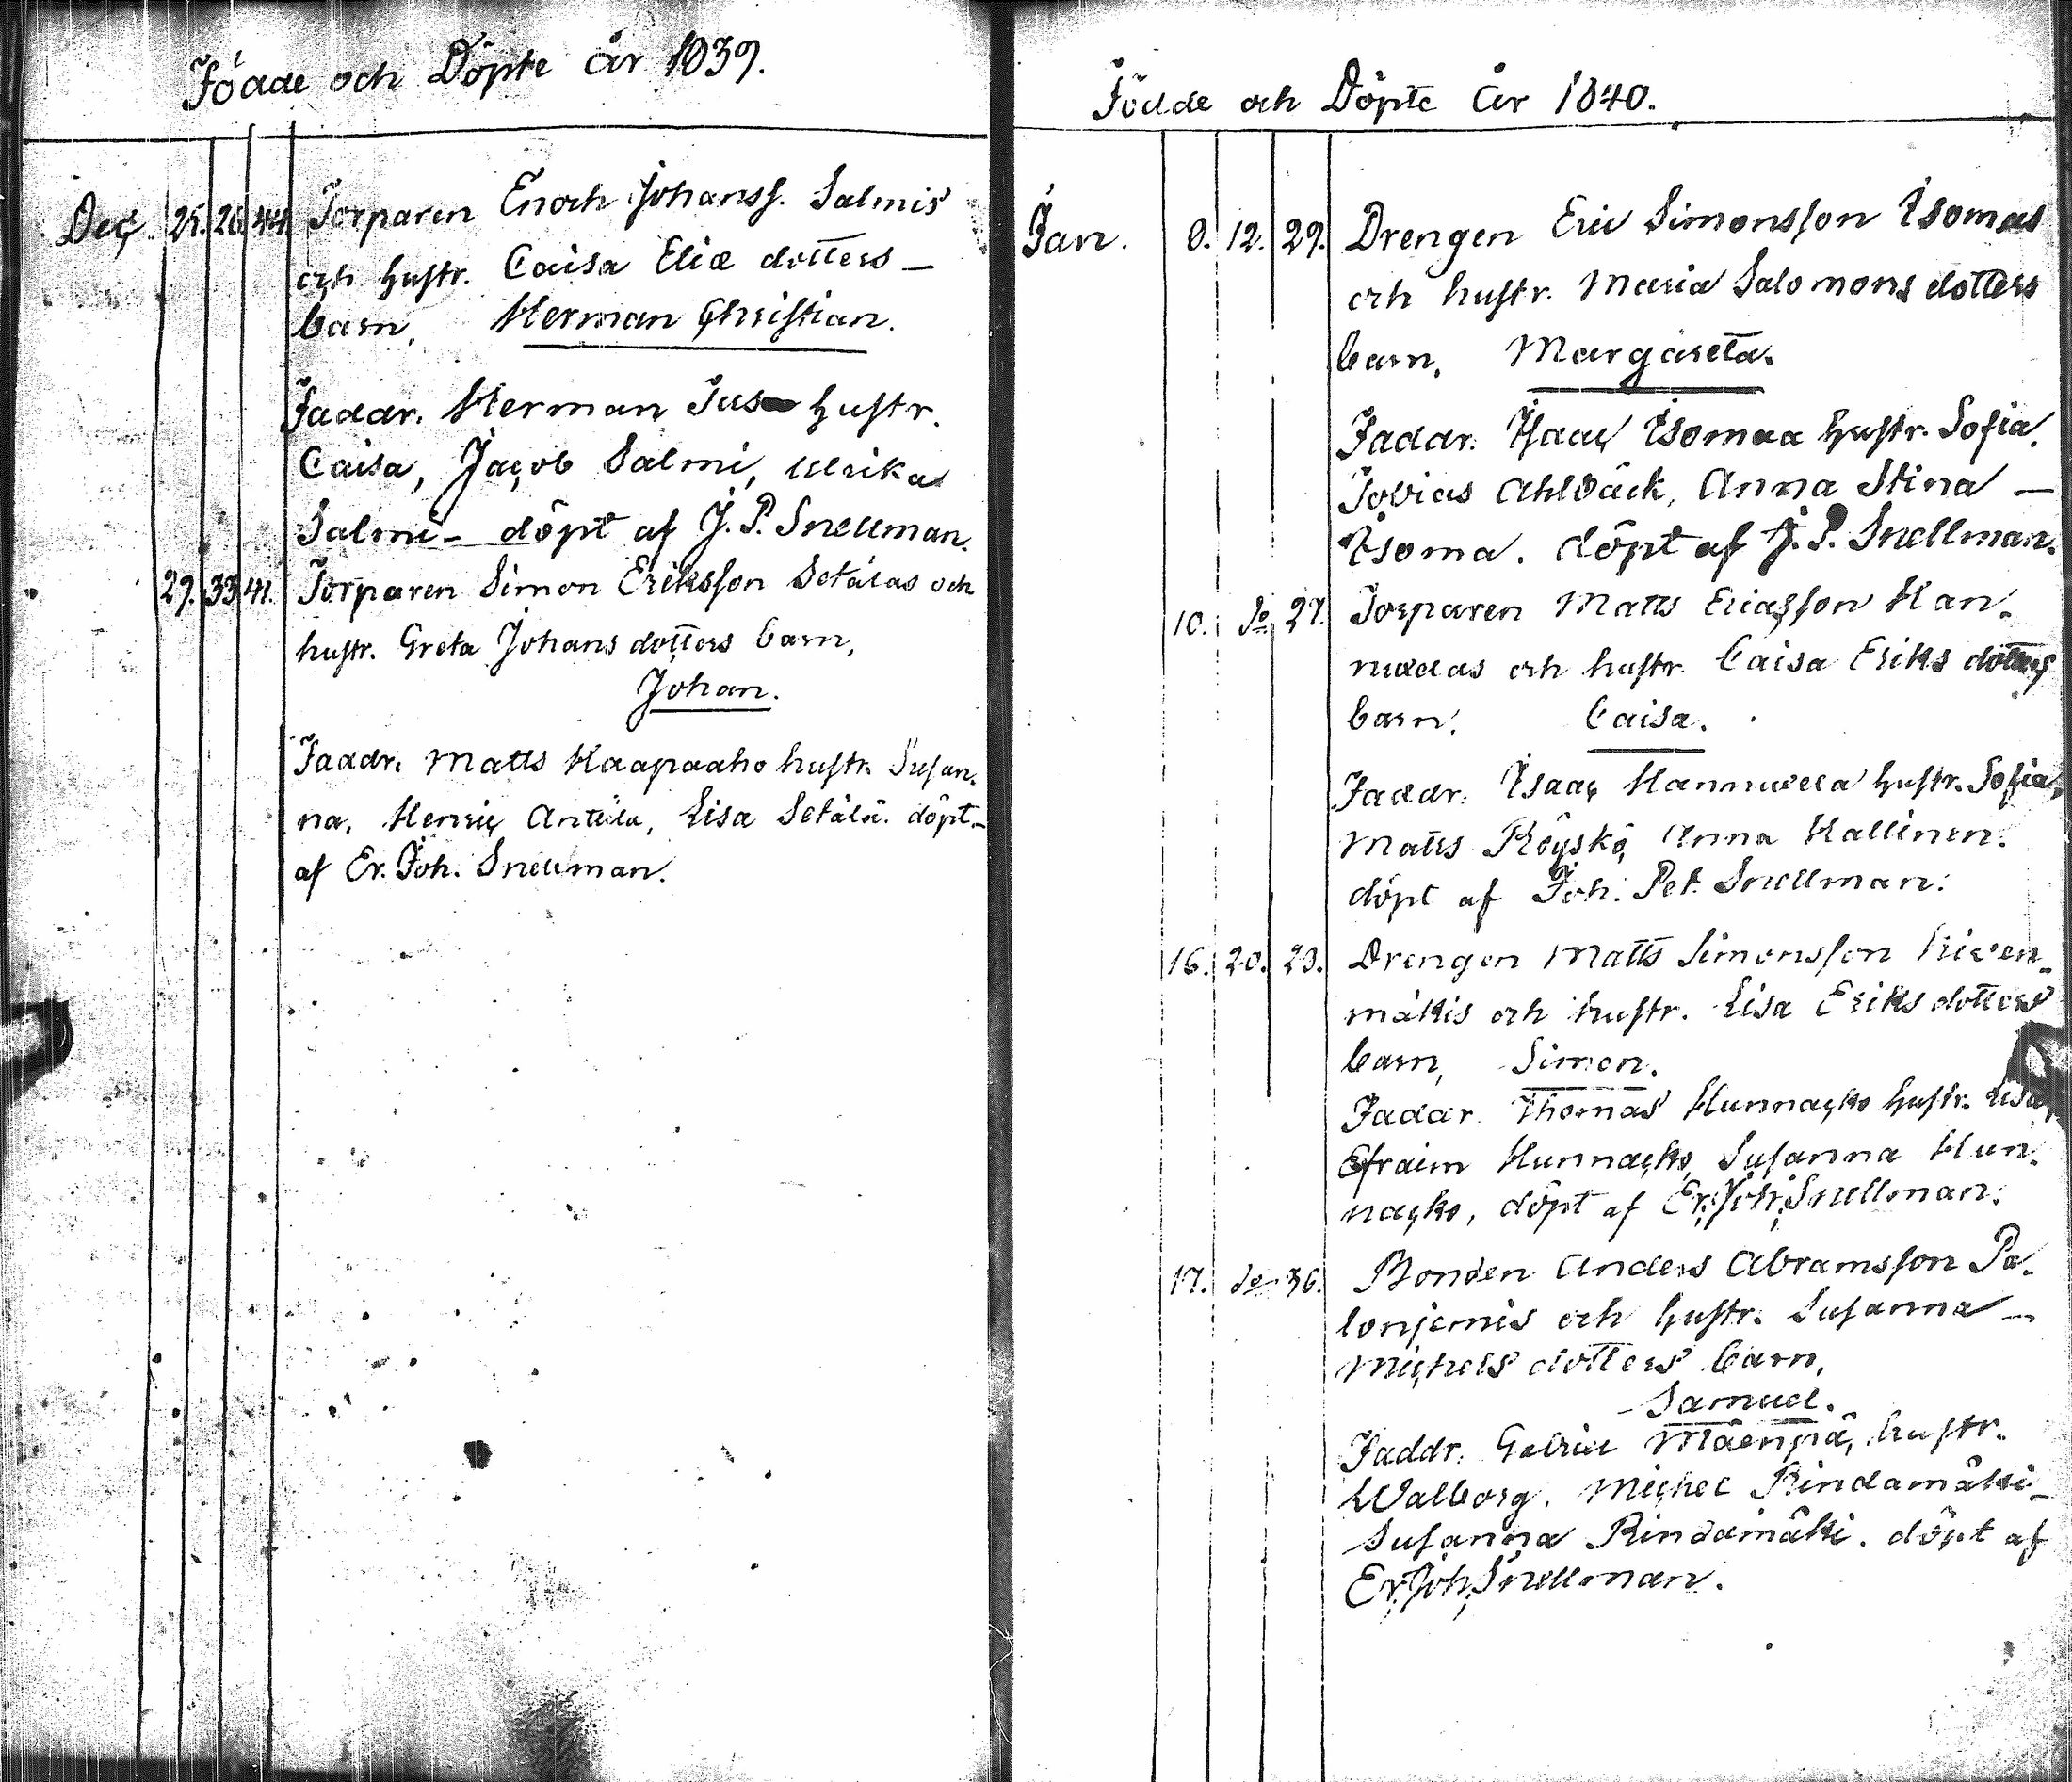 Födde och Döpte år 1839.
Dec. 25. 26. 44. Torparen Enoch Johanss. Salmis
och hustr. Caisa Eliæ dotters –
barn, Herman Christian.
Faddr. Herman Jus hustr.
Caisa, Jacob Salmi, Ulrika
Salmi – döpt af J. P. Snellman.
29. 33 41. Torparen Simon Eriksson Setälas och
hustr. Greta Johans dotters barn,
Johan.
Faddr. Matts Haapaaho hustr. Susan-
na, Henric Antila, Lisa Setälä. döpt –
af Er. Joh. Snellman.
Födde och Döpte år 1840.
Jan. 8. 12. 29. Drengen Eric Simonsson Isomas
och hustr. Maria Salomons dotters
barn, Margareta.
Faddr. Isaac Isomaa hustr. Sofia,
Tobias Ahlbäck, Anna Stina –
Isoma. döpt af J. P. Snellman.
10. do 27. Torparen Matts Eliasson Han-
nuxelas och hustr. Caisa Eriks dotters
barn, Caisa.
Faddr. Isaac hustr. Sofia,
Matts Röyskö, Anna Hallinen.
döpt af Joh. Pet. Snellman.
16. 20. 23. Drengen Matts Simonsson
mäkis och hustr. Lisa Eriks dotters
barn, Simon.
Faddr. Thomas Hunnacko hustr. Lisa,
Efraim Hunnacko, Susanna Hun-
nacko, döpt af Er. Joh. Snellman.
17. do 36. Bonden Anders Abramsson Pa-
lonjemis och hustr. Susanna –
Michels dotters barn,
Samuel.
Faddr. Gabriel Mäenpä, hustr.
Walborg. Michel Rindamäki –
Susanna Rindamäki. döpt af
Er. Joh. Snellman.